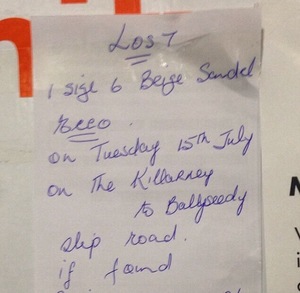 LOST
1 size 6 Beige Sandel
Ecco.
on Tuesday 15th July
on The Killarney
to Ballyseedy
slip road.
if found